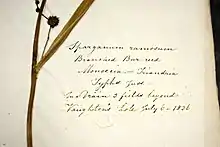 Sparganium ramosum
Branched Bur reed
Monoecia — Triandria
Typha Juss
In Drain 3 fields beyond
Vaughton's Hole July 6 - 1836